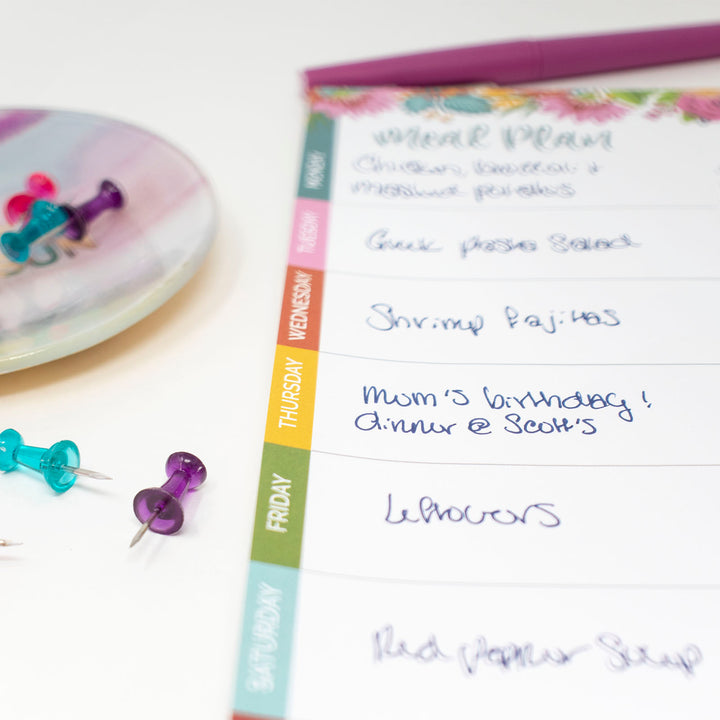 meal plan
MONDAY
Chicken, broccoli +
mashed potatoes
TUESDAY
Greek pasta Salad
WEDNESDAY
Shrimp Fajitas
THURSDAY
mom's birthday!
dinner @ Scott's
FRIDAY
Leftovers
SATURDAY
Red pepper